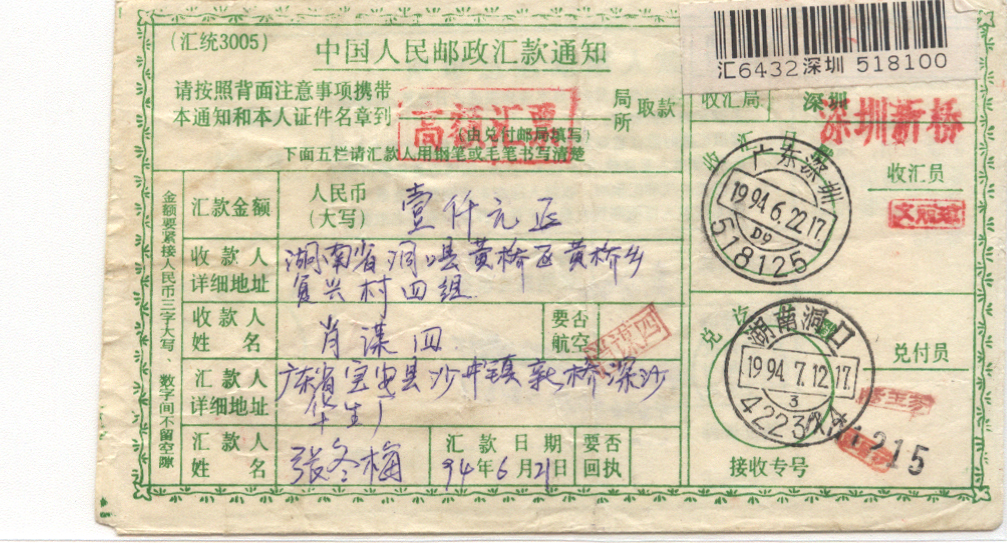 (汇统3005)
中国人民邮政汇款通知
汇6432深圳 518100
请按照背面注意事项携带
本通知和本人证件名章到
局
所
取款
高额汇票
(由兑付邮局填写)
下面五栏请汇款人用钢笔或毛笔书写清楚
收汇局
深圳
深圳新桥
收汇日
广东深圳
1994.6.22.17
D9
518125
收汇员
金额要紧接人民币三字大写、数字间不留空隙
汇款金额
人民币
(大写)
壹仟元正
收款人
详细地址
湖南省洞口县黄桥区黄桥乡
复兴村四组
收款人
姓名
肖谋四
要否
航空
汇款人
详细地址
广东省宝安县沙井镇新桥深沙
华生厂
汇款人
姓名
张冬梅
汇款日期
94年6月21日
要否
回执
兑汇
湖南洞口
1994.7.12.17
3
兑付员
215
接收专号